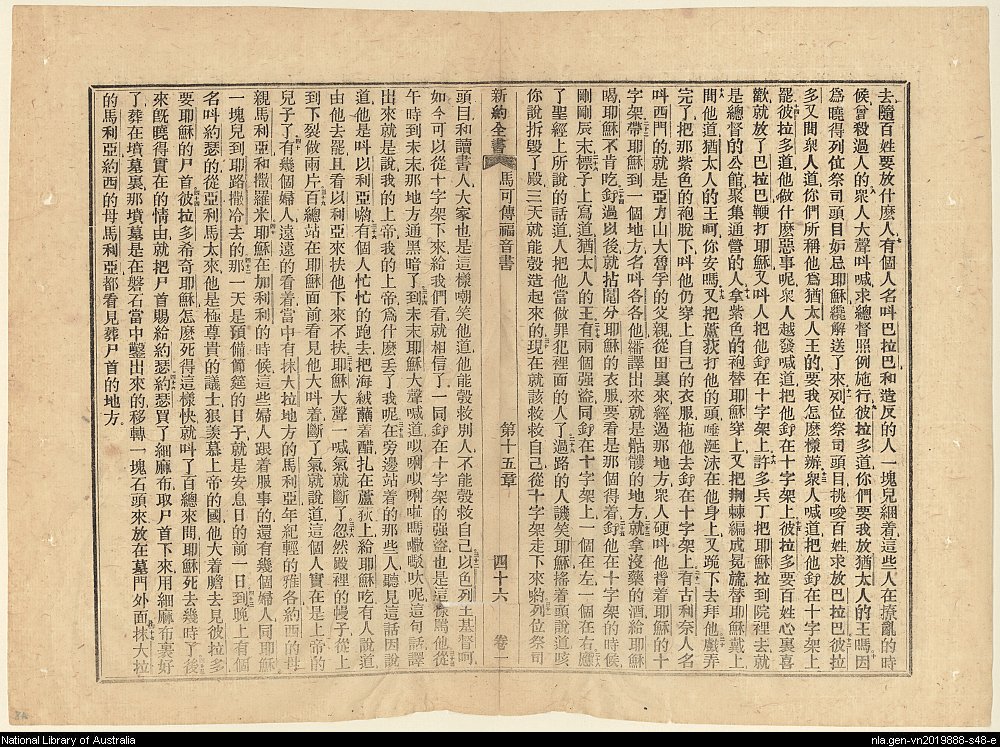 去隨百姓要放什麽人有個人名呌巴拉巴和造反的人一塊兒綑着這些人在擾亂的時
候曾殺過人的衆人大聲呌喊求總督照例施行彼拉多道你們要我放猶太人的王嗎因
爲曉得列位祭司頭目妒忌耶穌纔解送了來列位祭司頭目挑唆百姓求放巴拉巴彼拉
多又問衆人道你們所稱他爲猶太人王的要我怎麽樣辦衆人喊道把他釘在十字架上
罷彼拉多道他做什麽惡事呢衆人越發喊道把他釘在十字架上彼拉多要百姓心裏喜
歡就放了巴拉巴鞭打耶穌又呌人把他釘在十字架上許多兵丁把耶穌拉到院裡去就
是總督的公館聚集通營的人拿紫色的袍替耶穌穿上又把荆棘編成冕旒替耶穌戴上
問他道猶太人的王呵你安嗎又把蘆荻打他的頭唾涎沫在他身上又跪下去拜他戲弄
完了把那紫色的袍脫下呌他仍穿上自己的衣服拖他去釘在十字架上有古利奈人名
呌西門的就是亞力山大魯孚的父親從田裏來經過那地方衆人硬呌他揹着耶穌的十
字架帶耶穌到一個地方名呌各各他繙譯出來就是骷髏的地方就拿沒藥的酒給耶穌
喝耶穌不肯吃釘過以後就拈鬮分耶穌的衣服要看是那個得着釘他在十字架的時候
剛剛辰末標子上寫道猶太人的王有兩個强盜同釘在十字架上一個在左一個在右應
了聖經上所說的話道人把他當做罪犯裡面的人了過路的人譏笑耶穌搖着頭說道咳
你說拆毀了殿三天就能彀造起來的現在就該救救自己從十字架走下來喲列位祭司
新約全書 馬可傳福音書 第十五章 四十六 卷一
頭目和讀書人大家也是這樣嘲笑他道他能彀救别人不能彀救自己以色列王基督呵
如今可以從十字架下來給我們看就相信了一同釘在十字架的强盜也是這樣罵他從
午時到未末那地方通黑暗了到未末耶穌大聲喊道以啊以啊啦嗎㘔㘔吠呢這句話譯
出來就是說我的上帝我的上帝爲什麽丢了我呢在旁邊站着的那些人聽見這話因說
道他是呌以利亞喲有個人忙忙的跑去把海絨蘸着醋扎在蘆荻上給耶穌吃有人說道
由他去罷且看以利亞來扶他下來不扶耶穌大聲一喊氣就斷了忽然殿裡的幔子從上
到下裂做兩片百總站在耶穌面前看見他大呌着斷了氣就說道這個人實在是上帝的
兒子了有幾個婦人遠遠的看着當中有抹大拉地方的馬利亞年紀輕的雅各約西的母
親馬利亞和撒羅米耶穌在加利利的時候這些婦人跟着服事的還有幾個婦人同耶穌
一塊兒到耶路撒冷去的那一天是預備節筵的日子就是安息日的前一日到晚上有個
名呌約瑟的從亞利馬太來他是極尊貴的議士狠羡慕上帝的國他大着膽去見彼拉多
要耶穌的尸首彼拉多希奇耶穌怎麽死得這樣快就呌了百總來問耶穌死去幾時了後
來既曉得實在的情由就把尸首賜給約瑟約瑟買了細麻布取尸首下來用細麻布裹好
了葬在墳墓裏那墳墓是在磐石當中鑿出來的移轉一塊石頭來放在墓門外面抹大拉
的馬利亞約西的母馬利亞都看見葬尸首的地方
National Library of Australia
nla.gen-vn2019888-s48-e